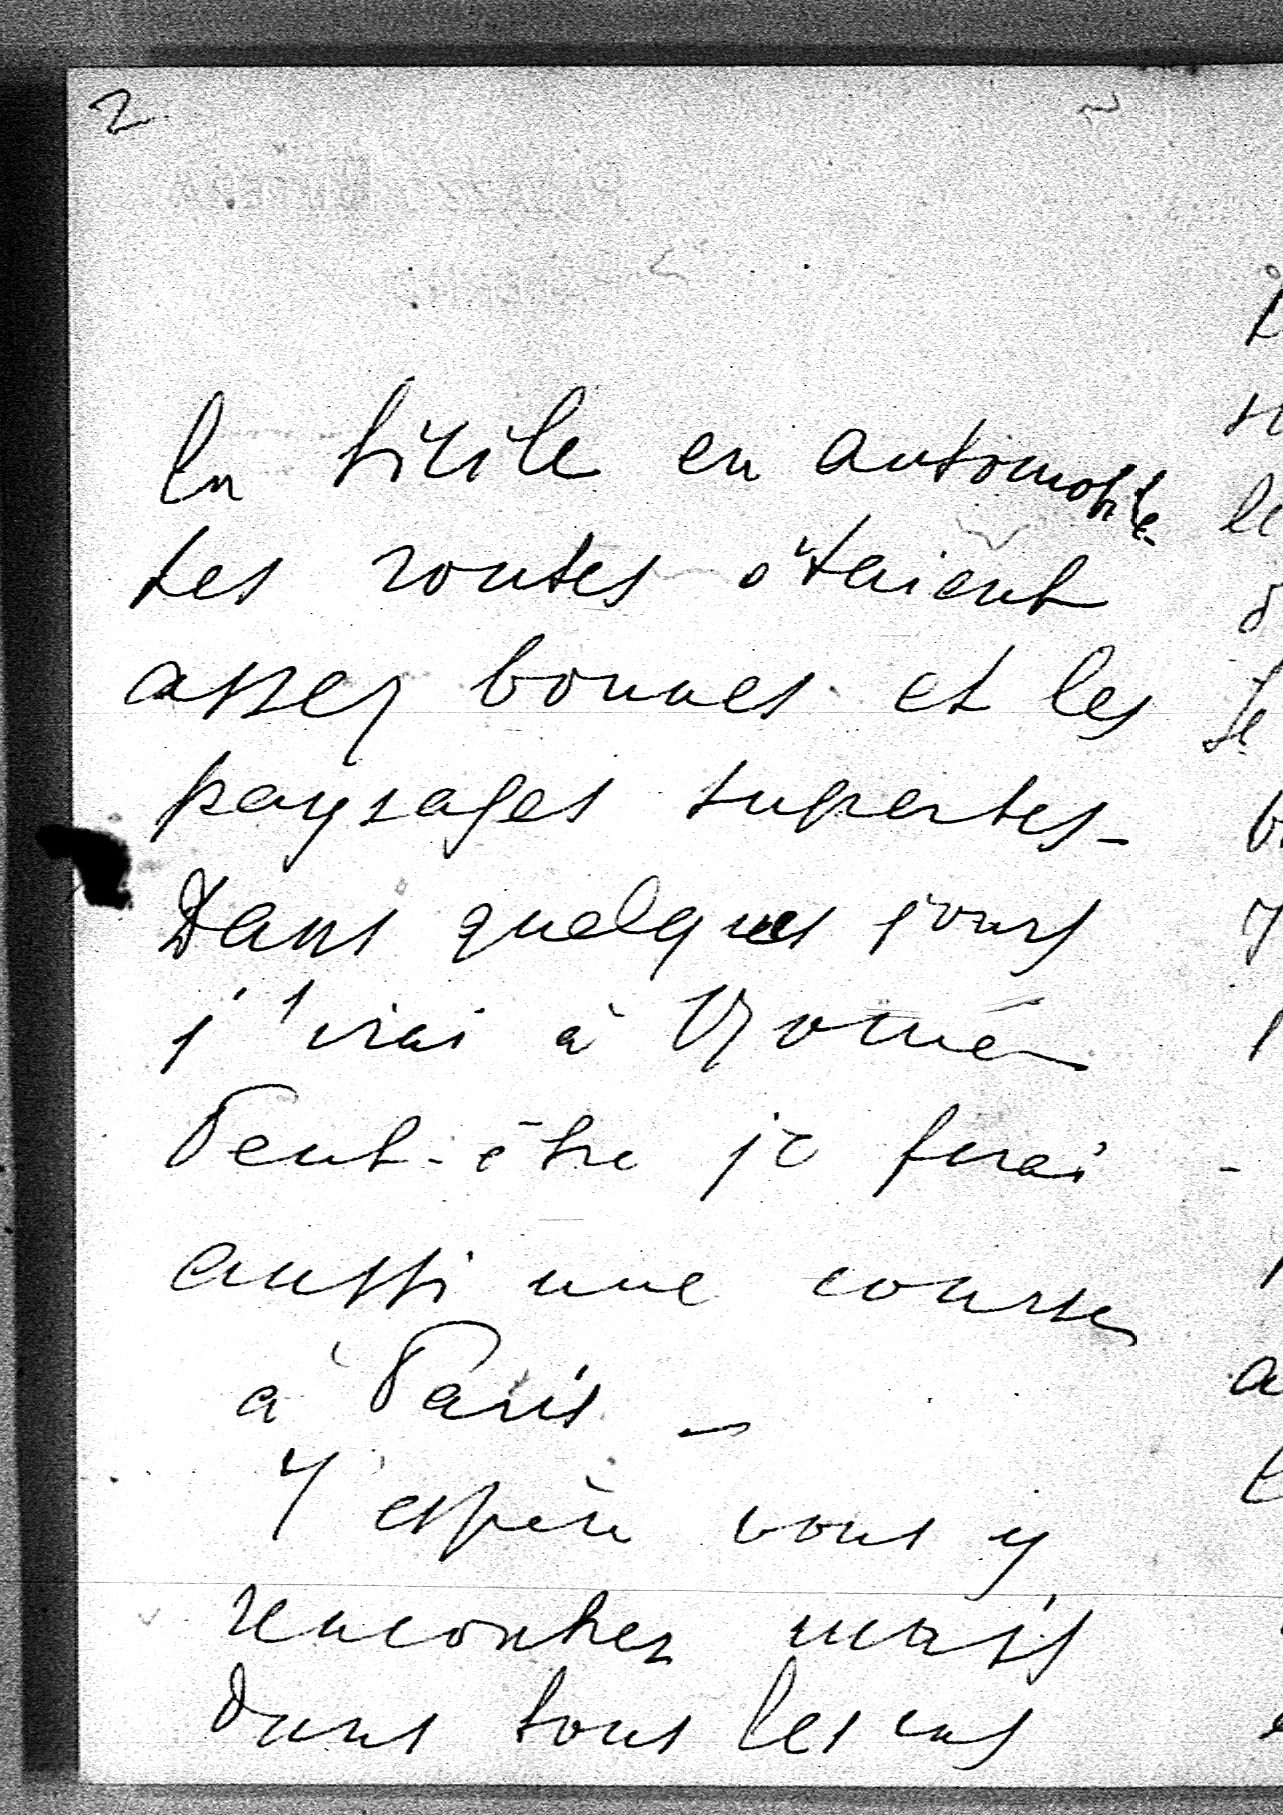 2
en Sicile en automobile
Les routes étaient
assez bonnes et les
paysages superbes -
Dans quelques jours
j'irai à Rome
Peut-être je ferai
aussi une course
à Paris -
J'espère vous y
rencontrer mais
dans tous les cas